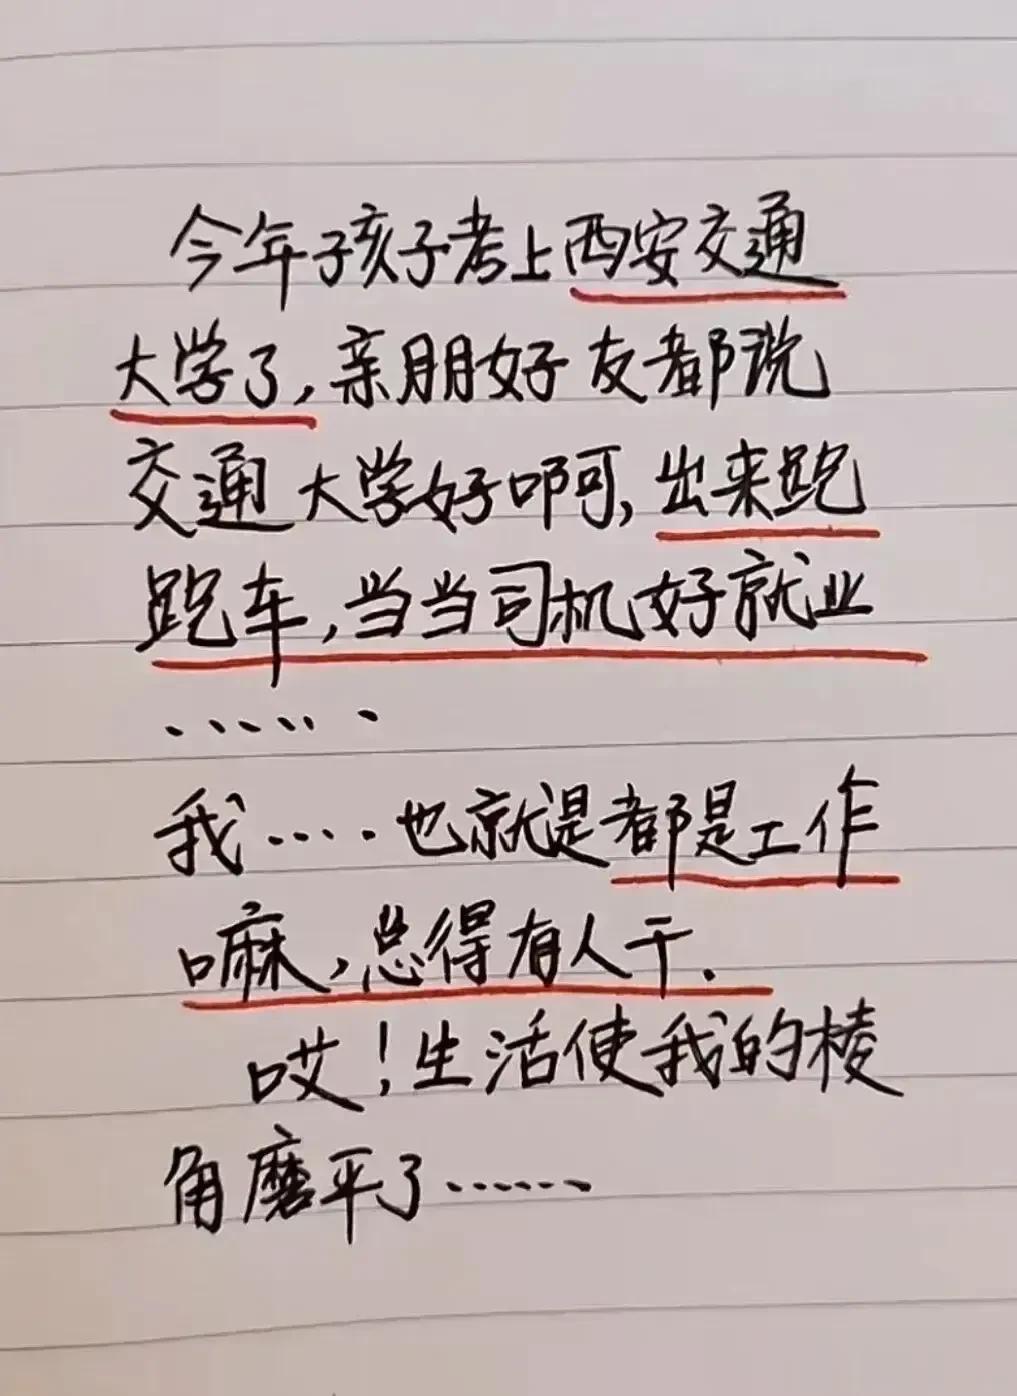 今年孩子考上西安交通
大学了，亲朋好友都说
交通大学好啊，出来跑
跑车，当当司机好就业
……
我……也就是都是工作
嘛，总得有人干．
哎！生活使我的棱
角磨平了……